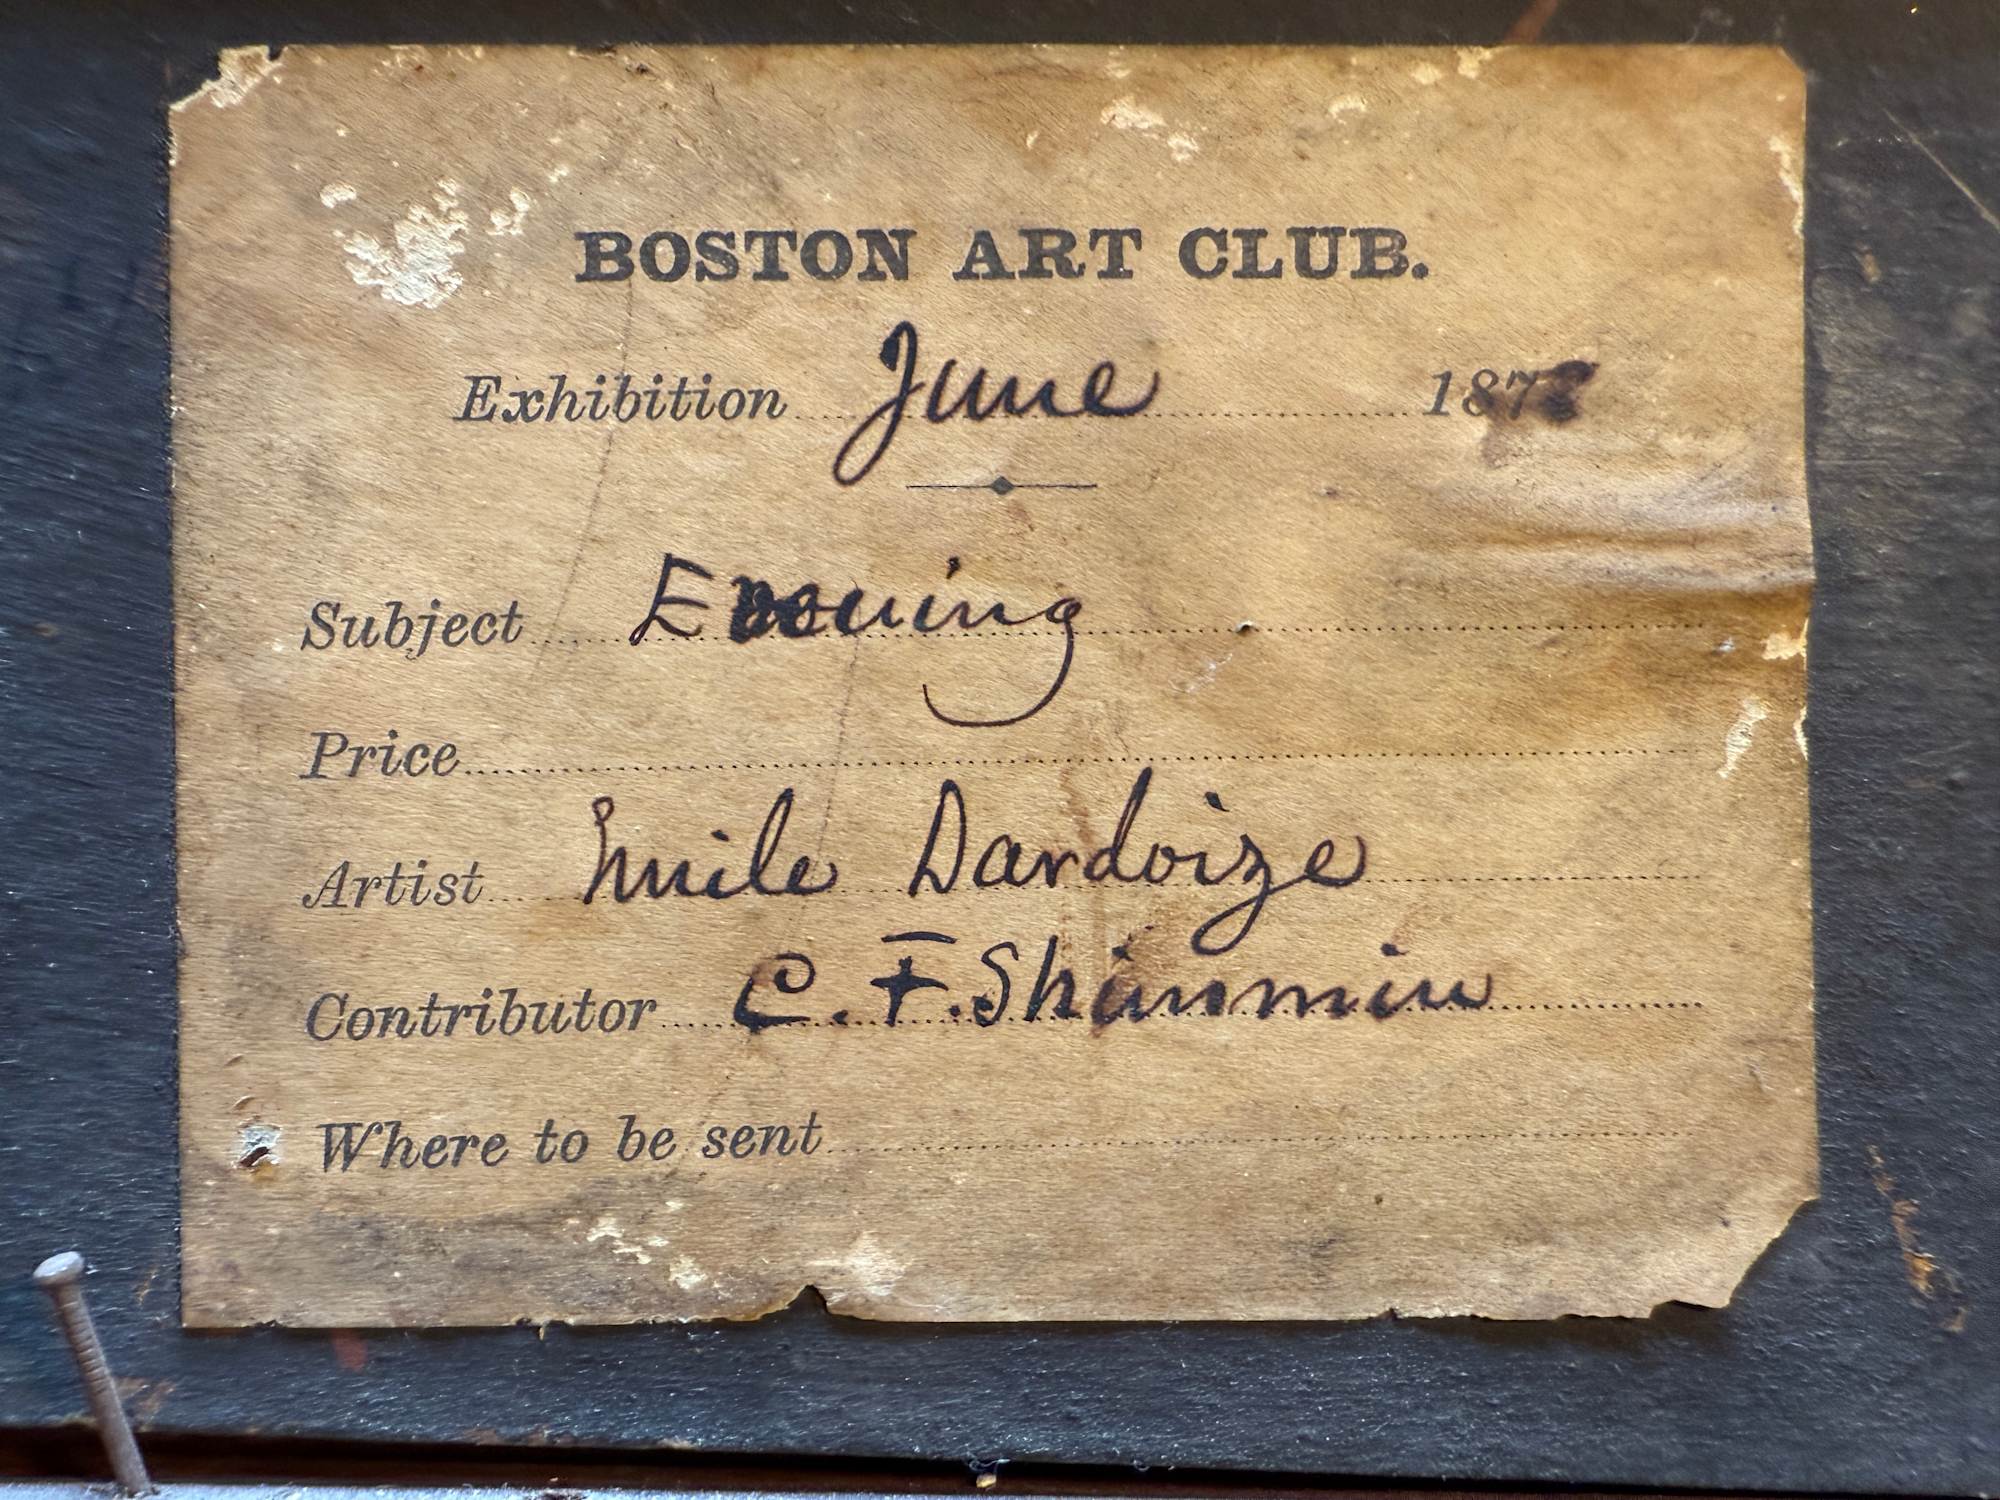 BOSTON ART CLUB.
Exhibition June 187
Subject Evening
Price
Artist Emile Dardoize
Contributor C. F. Shimmin
Where to be sent